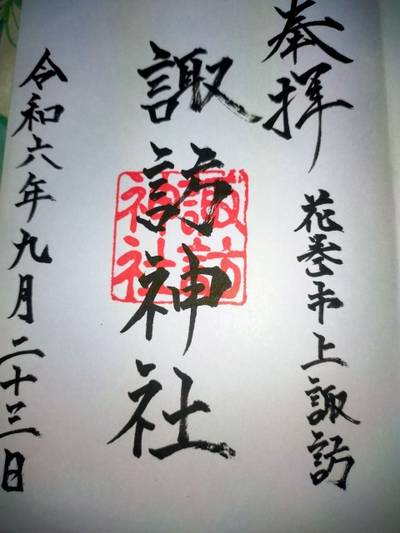 奉拝
花巻市上諏訪
諏訪神社
諏訪
神社
令和六年九月二十三日